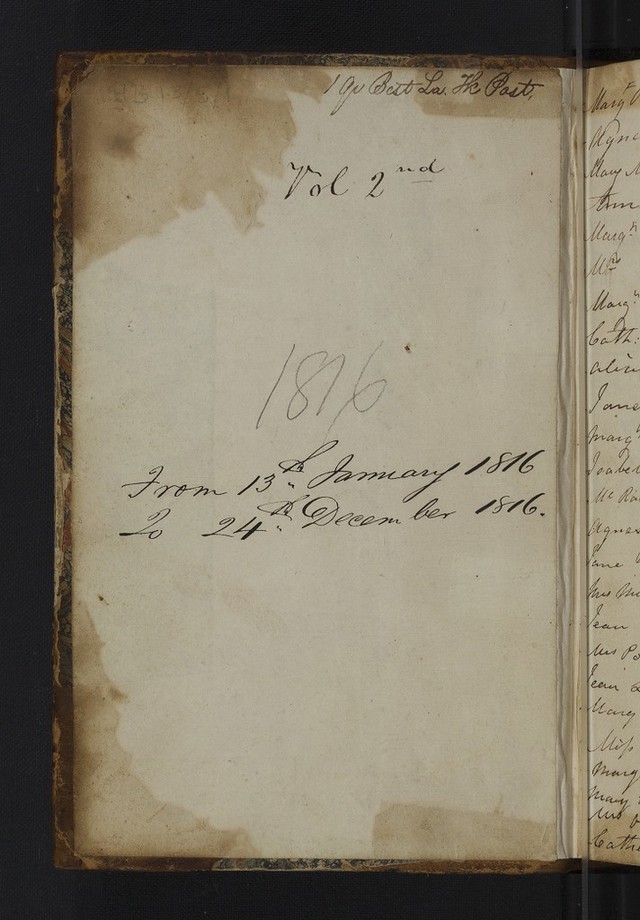 1 Qr Best La. Th: Post,
Vol 2nd
1816
From 13th January 1816
To 24th December 1816.
Marg
Agne
Mary M
Ann
Marg
Mrs
Marg
Cath:
Alice
Jane
Marg
Isabe
Mc
Agnes
Jane
Mrs
Jean
Mrs Po
Jean
Marg
Miss
Marg
Mary
Mrs
Cathe